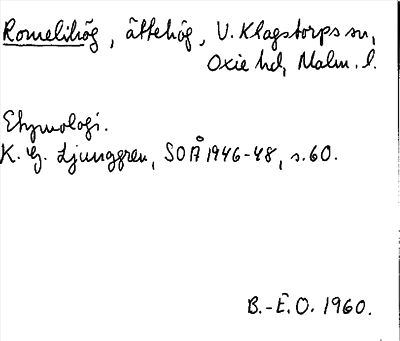 Romelihög, ättehög, V. Klagstorps sn,
Oxie hd, Malm. l.
Etymologi.
K. G. Ljunggren, SOÅ 1946-48, s. 60.
B.-E. O. 1960.